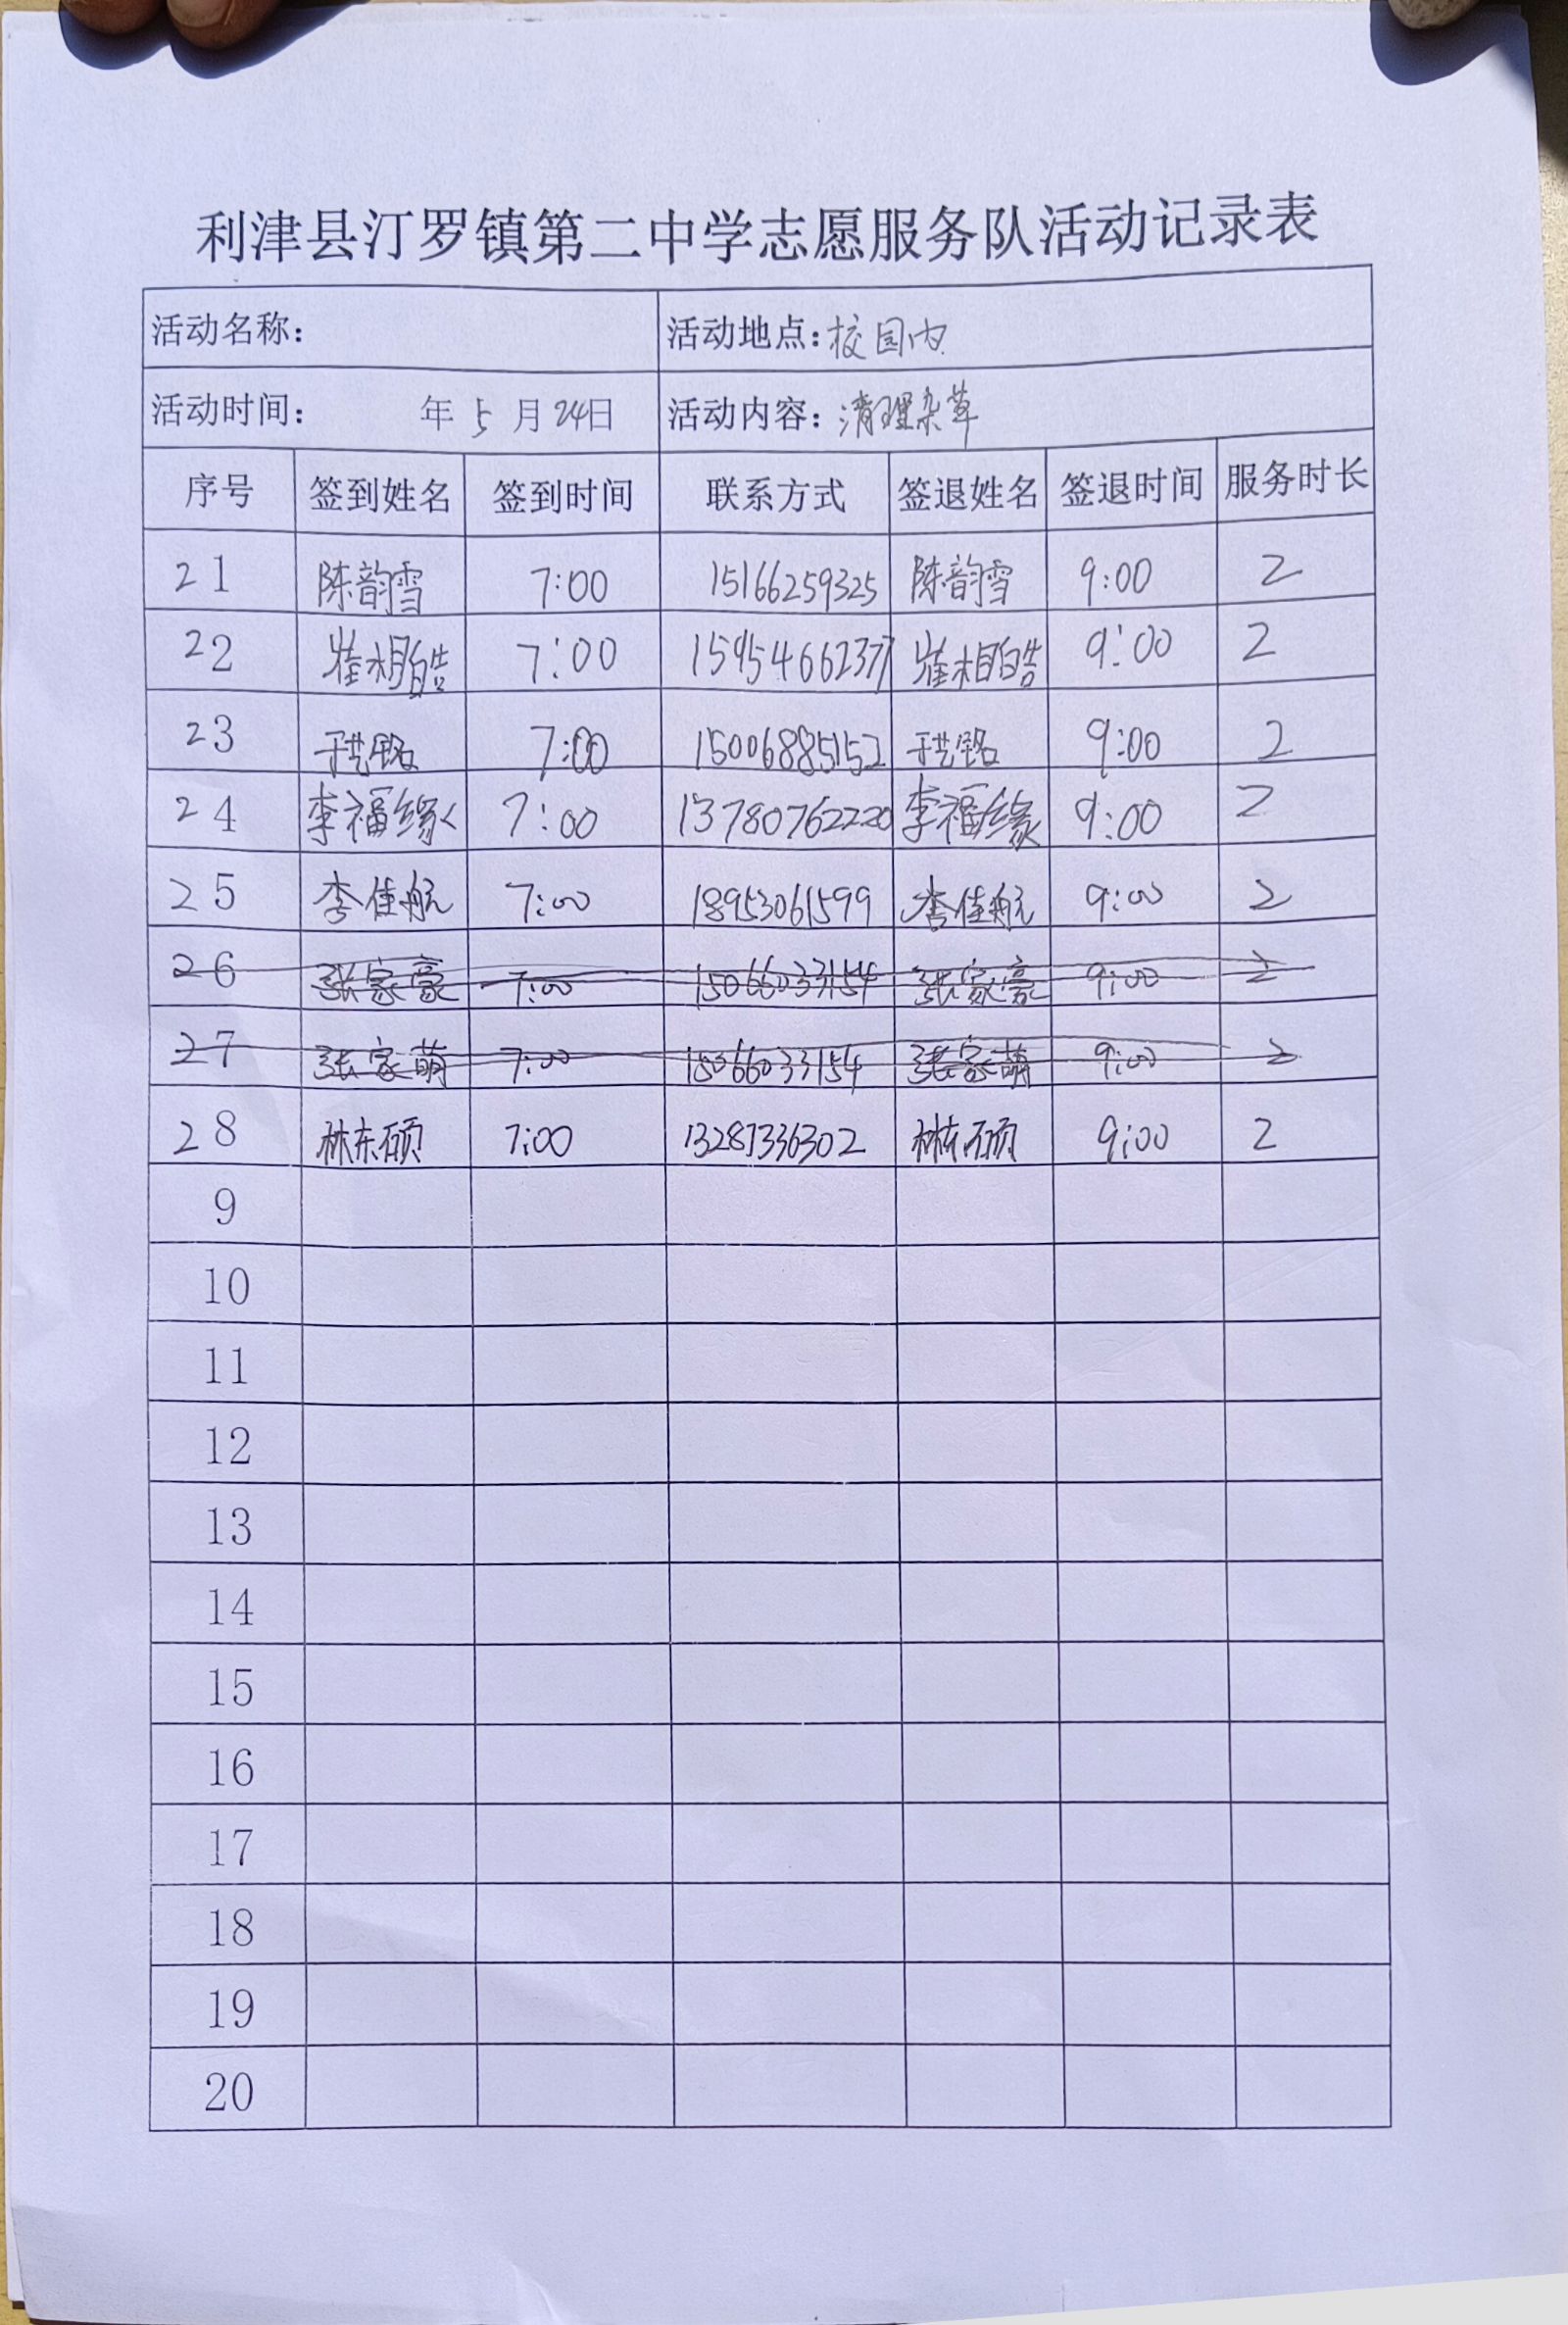 利津县汀罗镇第二中学志愿服务队活动记录表
活动名称： 活动地点：校园内
活动时间： 年 5 月 24日 活动内容：清理杂草
序号 签到姓名 签到时间 联系方式 签退姓名 签退时间 服务时长
21 陈韵雪 7:00 15166259325 陈韵雪 9:00 2
22 崔相皓 7:00 15954662377 崔相皓 9:00 2
23 于艺铭 7:00 15006885152 于艺铭 9:00 2
24 李福缘 7:00 13780762220 李福缘 9:00 2
25 李佳航 7:00 18953061599 李佳航 9:00 2
26 张家豪 7:00 15066033154 张家豪 9:00 2
27 张家萌 7:00 15066033154 张家萌 9:00 2
28 林东硕 7:00 13287336302 林东硕 9:00 2
9
10
11
12
13
14
15
16
17
18
19
20